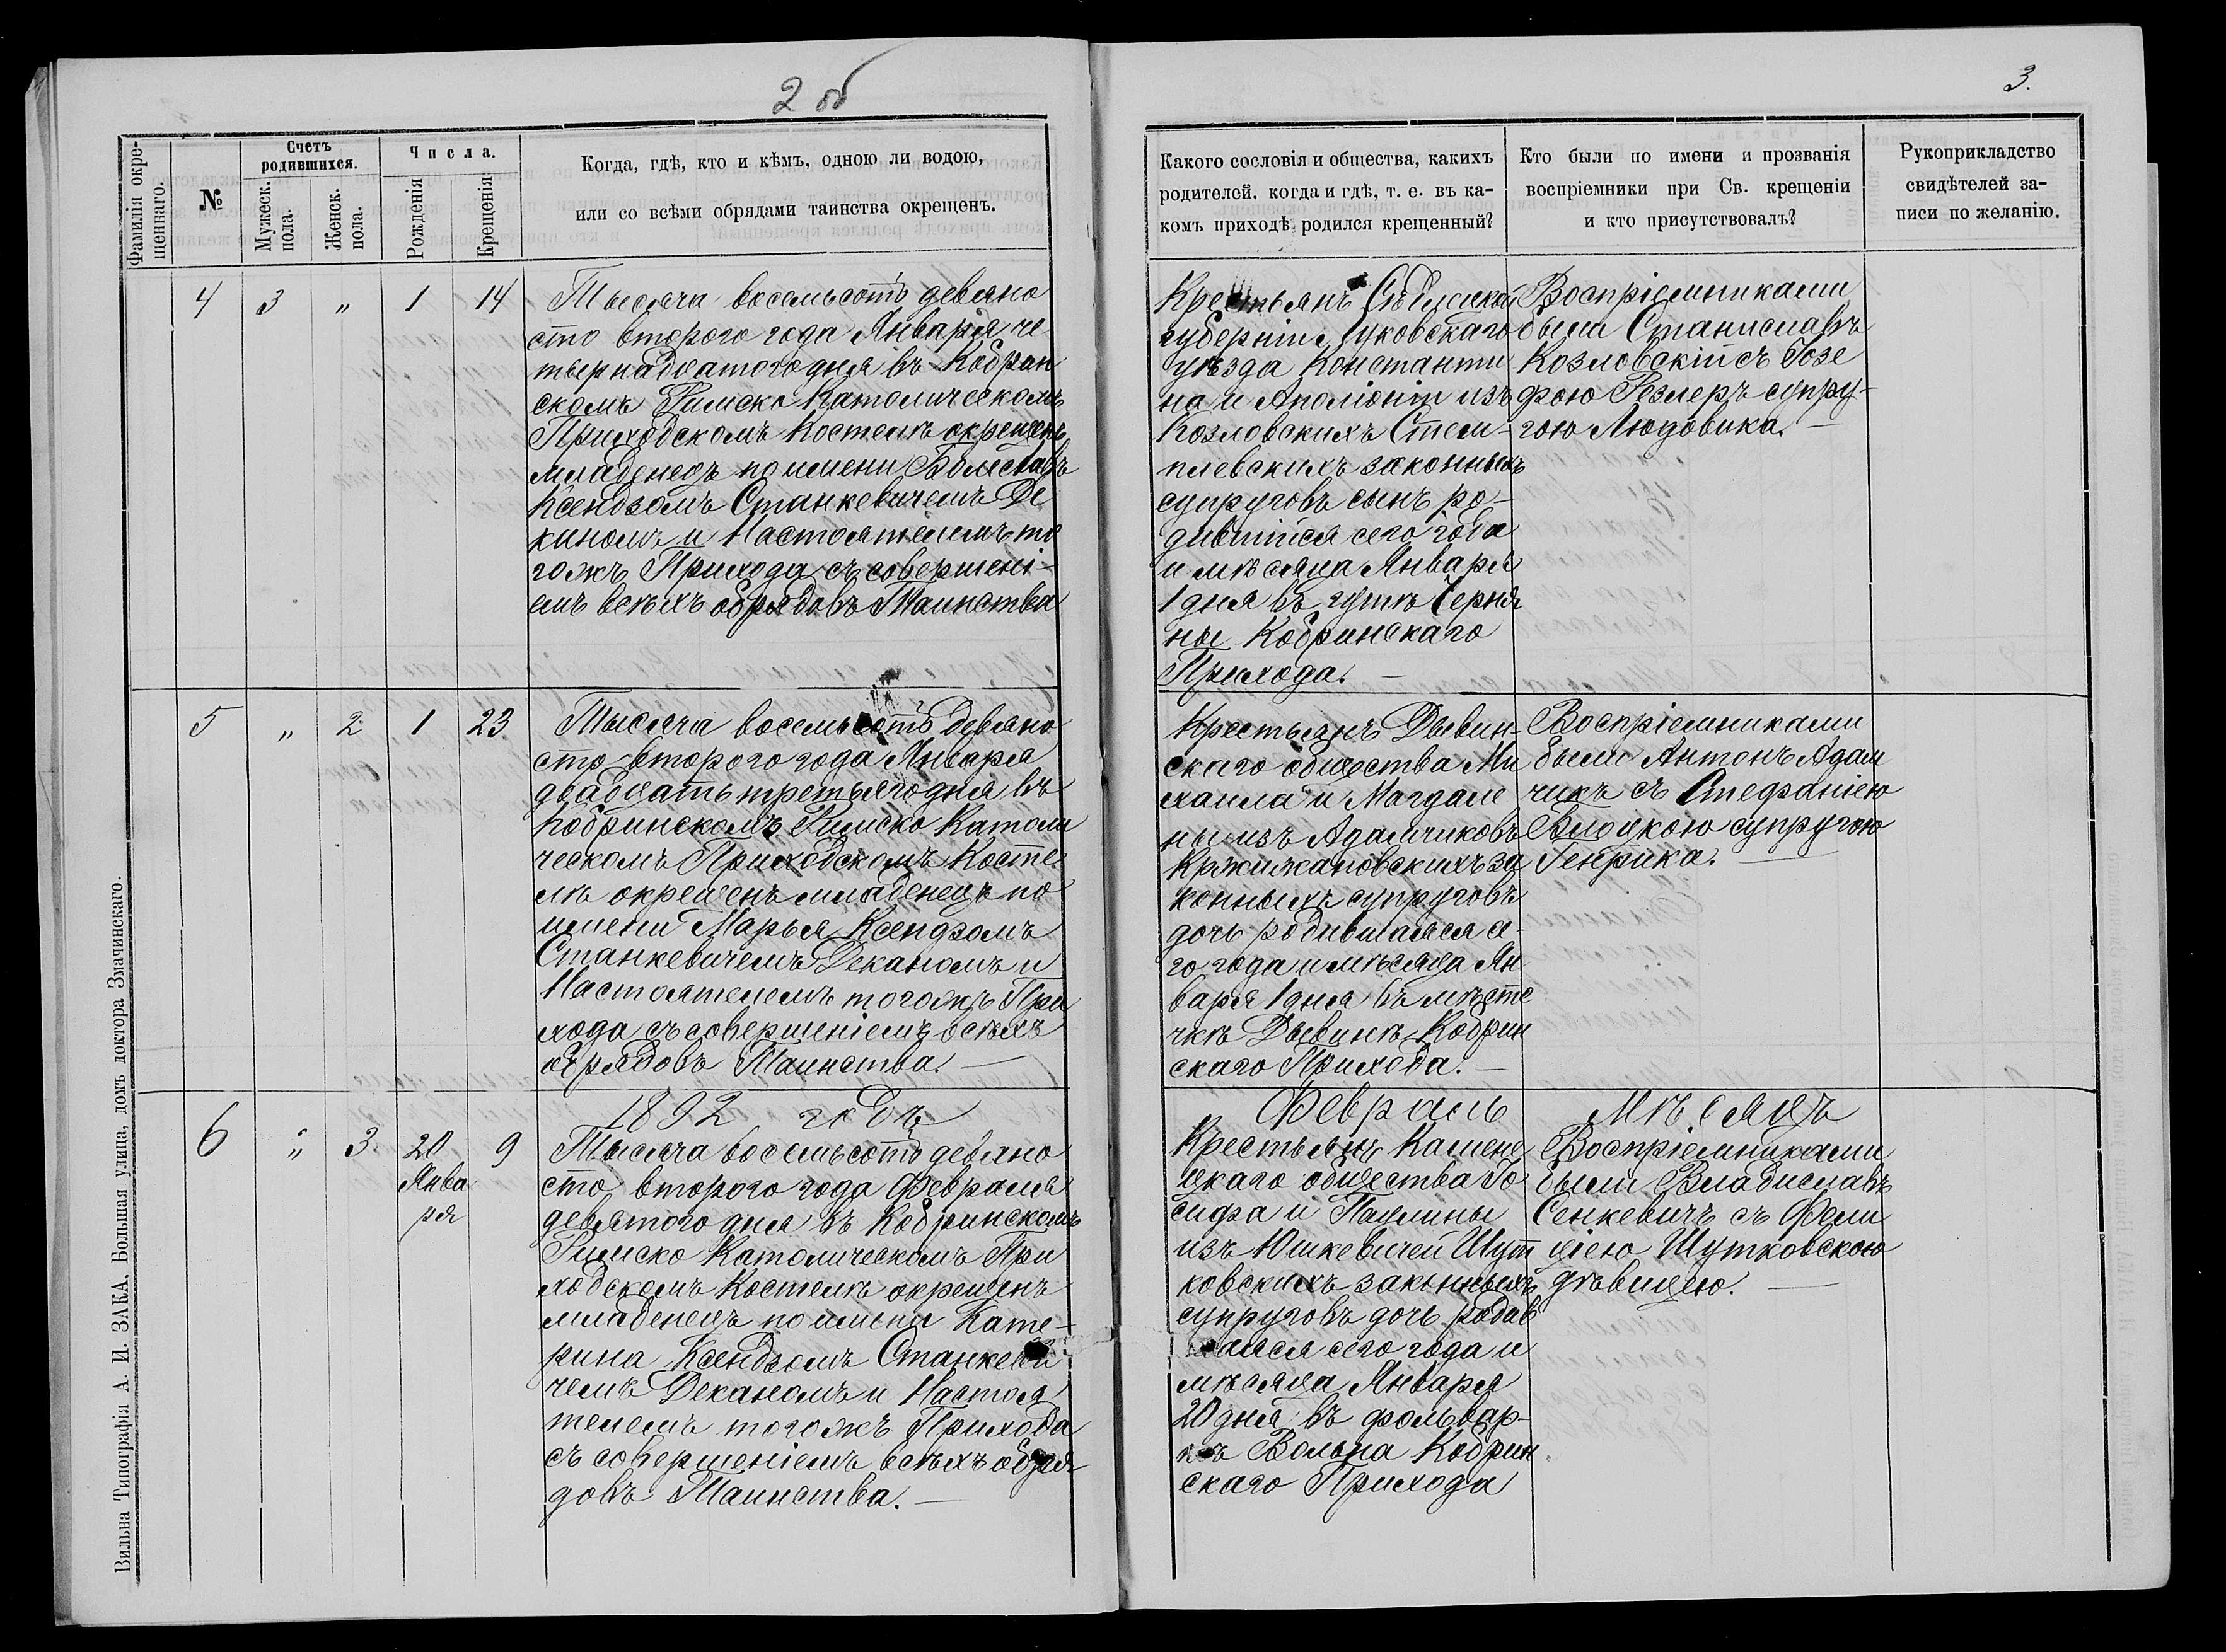 2 об
3.
Фамилія окре-
щеннаго.
№
Счетъ
родившихся.
Мужеск.
пола.
Женск.
пола.
Числа.
Рожденія
Крещенія
Когда, гдѣ, кто и кѣмъ, одною ли водою,
или со всѣми обрядами таинства окрещенъ.
Какого сословія и общества, какихъ
родителей, когда и гдѣ, т. е. въ ка-
комъ приходѣ родился крещенный?
Кто были по имени и прозванія
воспріемники при Св. крещеніи
и кто присутствовалъ?
Рукоприкладство
свидѣтелей за-
писи по желанію.
4 3 " 1 14
Тысяча восемьсотъ девяно
сто второго года Января че
тырнадцатого дня въ Кобрин
скомъ Римско Католическомъ
Приходскомъ Костелѣ окрещенъ
младенецъ по имени Болеславъ
Ксендзомъ Станкевичемъ Де
каномъ и Настоятелемъ то
гожъ Прихода съ совершені-
емъ всѣхъ обрядовъ Таинства
Крестьянъ Сѣдлецкой
губерніи Луковскаго
уѣзда Константи
на и Аполіоніи изъ
Козловскихъ Стем-
плевскихъ законныхъ
супруговъ сынъ ро-
дившійся сего года
и мѣсяца Января
1 дня въ гутѣ Черня
ны Кобринскаго
Прихода. —
Воспріемниками
были Станиславъ
Козловскій съ Іозе
фою Резлеръ супру-
гою Людовика. —
5 " 2 1 23
Тысяча восемьсотъ девяно
сто второго года Января
двадцать третьяго дня въ
Кобринскомъ Римско Католи
ческомъ Приходскомъ Косте
лѣ окрещенъ младенецъ по
имени Марья Ксендзомъ
Станкевичемъ Деканомъ и
Настоятелемъ тогожъ При
хода съ совершеніемъ всѣхъ
обрядовъ Таинства. —
Крестьянъ Дывин-
скаго общества Ми
хаила и Магдале
ны изъ Адамчиковъ
Кржижановскихъ за
конныхъ супруговъ
дочь родившаяся се-
го года и мѣсяца Ян
варя 1 дня въ мѣсте
чкѣ Дывинѣ Кобрин
скаго Прихода. —
Воспріемниками
были Антонъ Адам
чикъ съ Стефаніею
супругою
Генрика. —
1892 годъ
Февраль мѣсяцъ
6 " 3 20
Янва
ря
9
Тысяча восемьсотъ девяно
сто второго года Февраля
девятого дня въ Кобринскомъ
Римско Католическомъ При
ходскомъ Костелѣ окрещенъ
младенецъ по имени Кате-
рина Ксендзомъ Станкеви
чемъ Деканомъ и Настоя
телемъ тогожъ Прихода
съ совершеніемъ всѣхъ обря
довъ Таинства. —
Крестьянъ Камене
цкаго общества Іо
сифа и Паулины
изъ Юшкевичей Шут
ковскихъ законныхъ
супруговъ дочь родив
шаяся сего года и
мѣсяца Января
20 дня въ фольвар-
кѣ Вольна Кобрин
скаго Прихода
Воспріемниками
были Владиславъ
Сенкевичъ съ Фели
ціею Шутковскою
дѣвицею. —
Вильна Типографія А. И. ЗАКА, Большая улица, домъ доктора Змачинскаго.